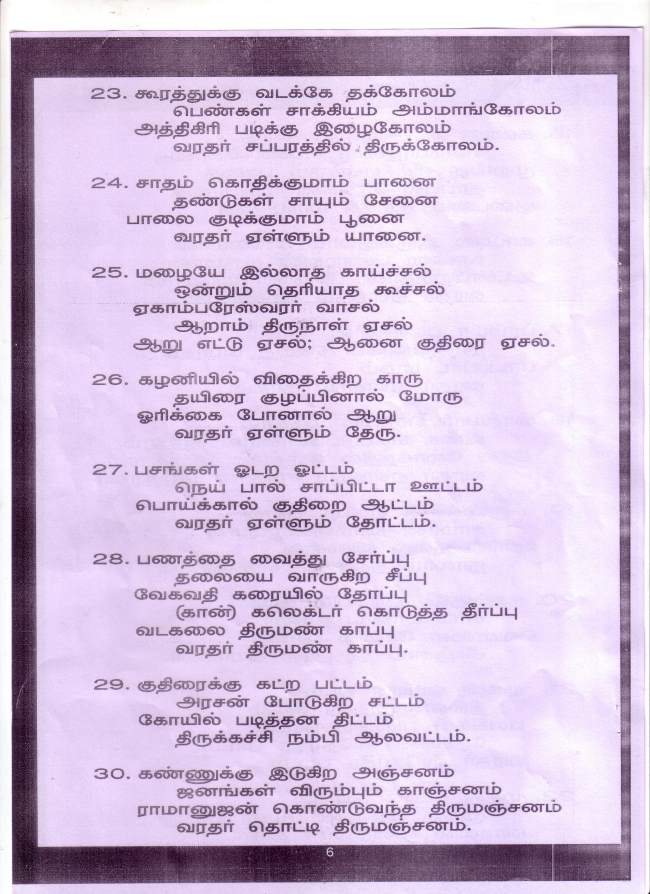 23. கூரத்துக்கு வடக்கே தக்கோலம்
பெண்கள் சாக்கியம் அம்மாங்கோலம்
அத்திகிரி படிக்கு இழைகோலம்
வரதர் சப்பரத்தில் திருக்கோலம்.
24. சாதம் கொதிக்குமாம் பானை
தண்டுகள் சாயும் சேனை
பாலை குடிக்குமாம் பூனை
வரதர் ஏள்ளும் யானை.
25. மழையே இல்லாத காய்ச்சல்
ஒன்றும் தெரியாத கூச்சல்
ஏகாம்பரேஸ்வரர் வாசல்
ஆறாம் திருநாள் ஏசல்
ஆறு எட்டு ஏசல்; ஆனை குதிரை ஏசல்.
26. கழனியில் விதைக்கிற காரு
தயிரை குழப்பினால் மோரு
ஓரிக்கை போனால் ஆறு
வரதர் ஏள்ளும் தேரு.
27. பசங்கள் ஓடற ஓட்டம்
நெய் பால் சாப்பிட்டா ஊட்டம்
பொய்க்கால் குதிறை ஆட்டம்
வரதர் ஏள்ளும் தோட்டம்.
28. பணத்தை வைத்து சேர்ப்பு
தலையை வாருகிற சீப்பு
வேகவதி கரையில் தோப்பு
(கான்) கலெக்டர் கொடுத்த தீர்ப்பு
வடகலை திருமண் காப்பு
வரதர் திருமண் காப்பு.
29. குதிரைக்கு கட்ற பட்டம்
அரசன் போடுகிற சட்டம்
கோயில் படித்தன திட்டம்
திருக்கச்சி நம்பி ஆலவட்டம்.
30. கண்ணுக்கு இடுகிற அஞ்சனம்
ஜனங்கள் விரும்பும் காஞ்சனம்
ராமானுஜன் கொண்டுவந்த திருமஞ்சனம்
வரதர் தொட்டி திருமஞ்சனம்.
6